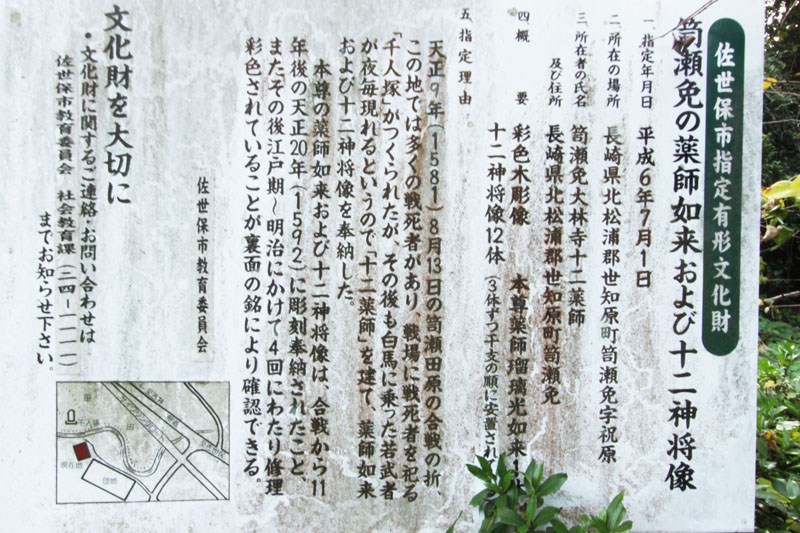 佐世保市指定有形文化財
笥瀬免の薬師如来および十二神将像
一、指定年月日 平成6年7月1日
二、所在の場所 長崎県北松浦郡世知原町笥瀬免字祝原
三、所在者の氏名 笥瀬免大林寺十二薬師
及び住所 長崎県北松浦郡世知原町笥瀬免
四、概 要 彩色木彫像 本尊薬師瑠璃光如来1
十二神将像12体 (3体ずつ干支の順に安置され
五、指定理由
天正9年(1581)8月13日の笥瀬田原の合戦の折、
この地では多くの戦死者があり、戦場に戦死者を祀る
「千人塚」がつくられたが、その後も白馬に乗った若武者
が夜毎現れるというので「十二薬師」を建て、薬師如来
および十二神将像を奉納した。
本尊の薬師如来および十二神将像は、合戦から11
年後の天正20年(1592)に彫刻奉納されたこと、
またその後江戸期〜明治にかけて4回にわたり修理
彩色されていることが裏面の銘により確認できる。
佐世保市教育委員会
文化財を大切に
・文化財に関するご連絡・お問い合わせは
佐世保市教育委員会 社会教育課(二四-一一一一)
までお知らせ下さい。
千人塚
現在地